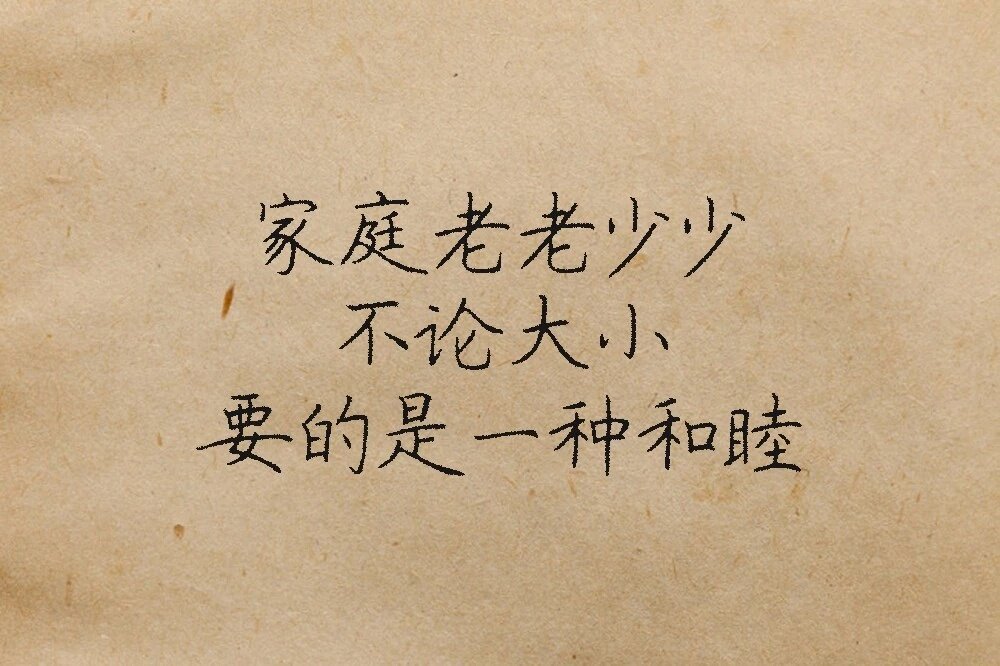 家庭老老少少
不论大小
要的是一种和睦